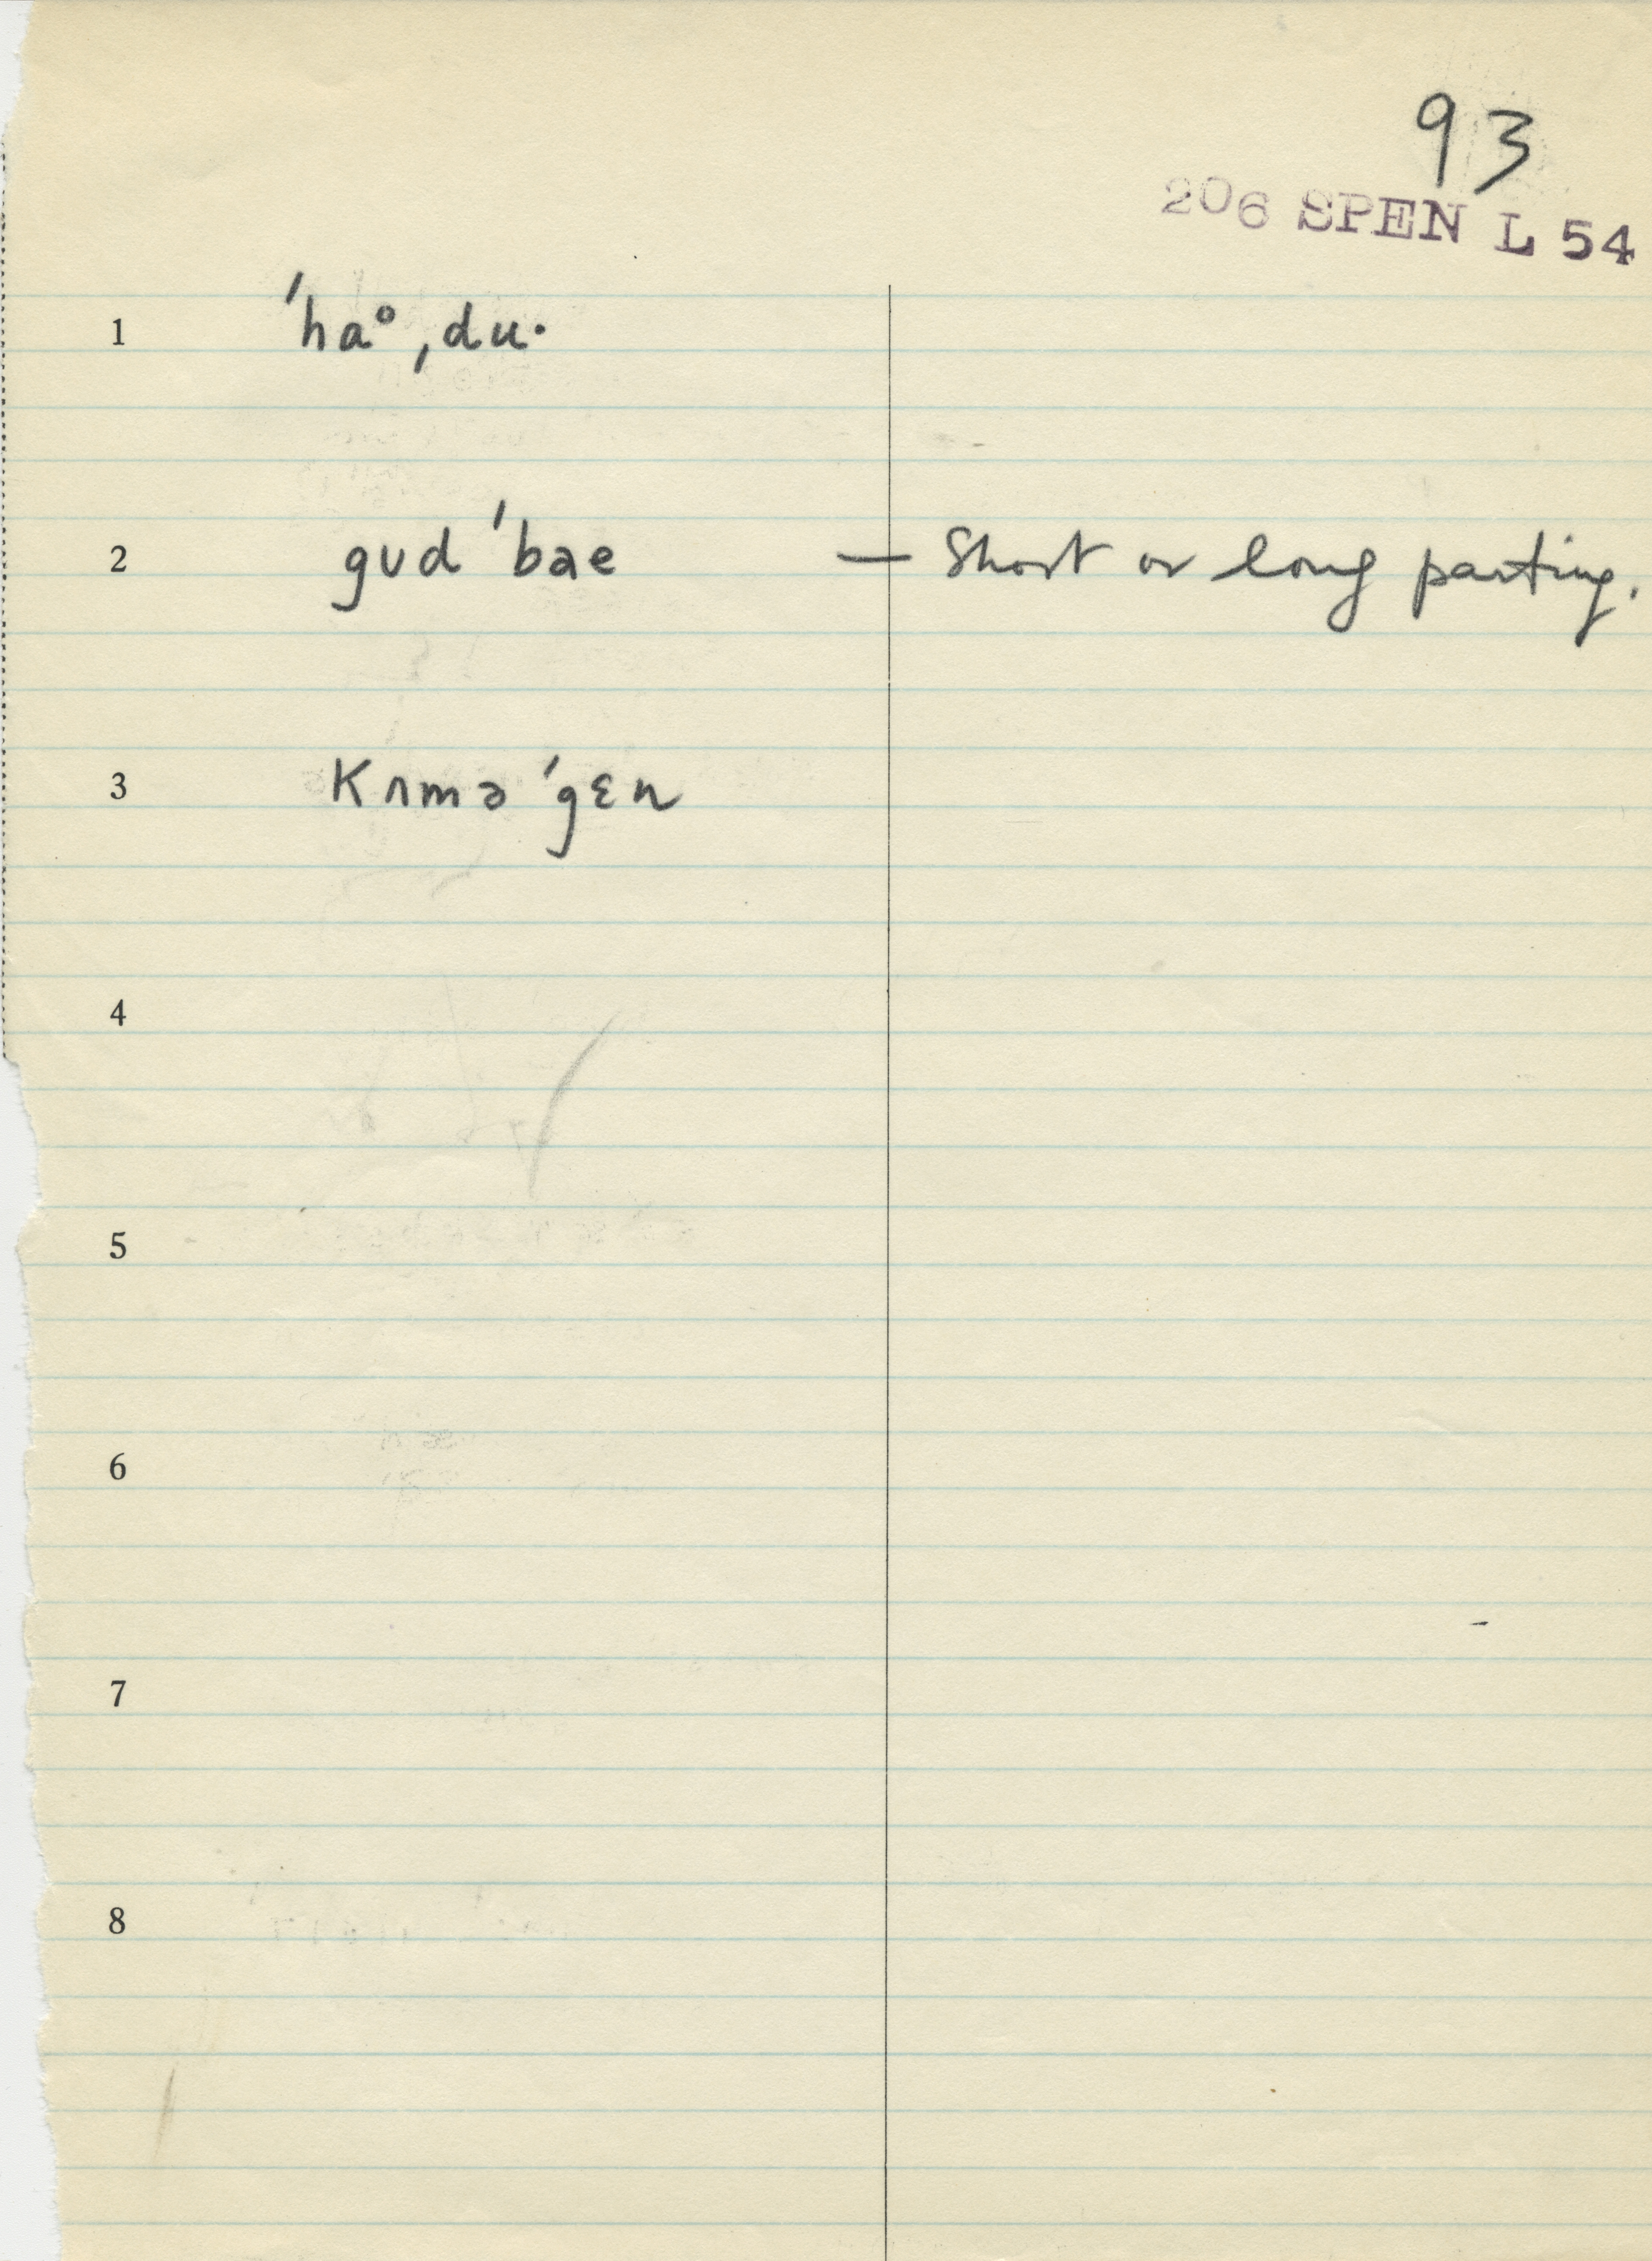 93
206 SPEN L 54
1 ˈhaᵒˌdu·
2 gʊdˈbae — Short or long parting.
3 kʌməˈgɛn
4
5
6
7
8